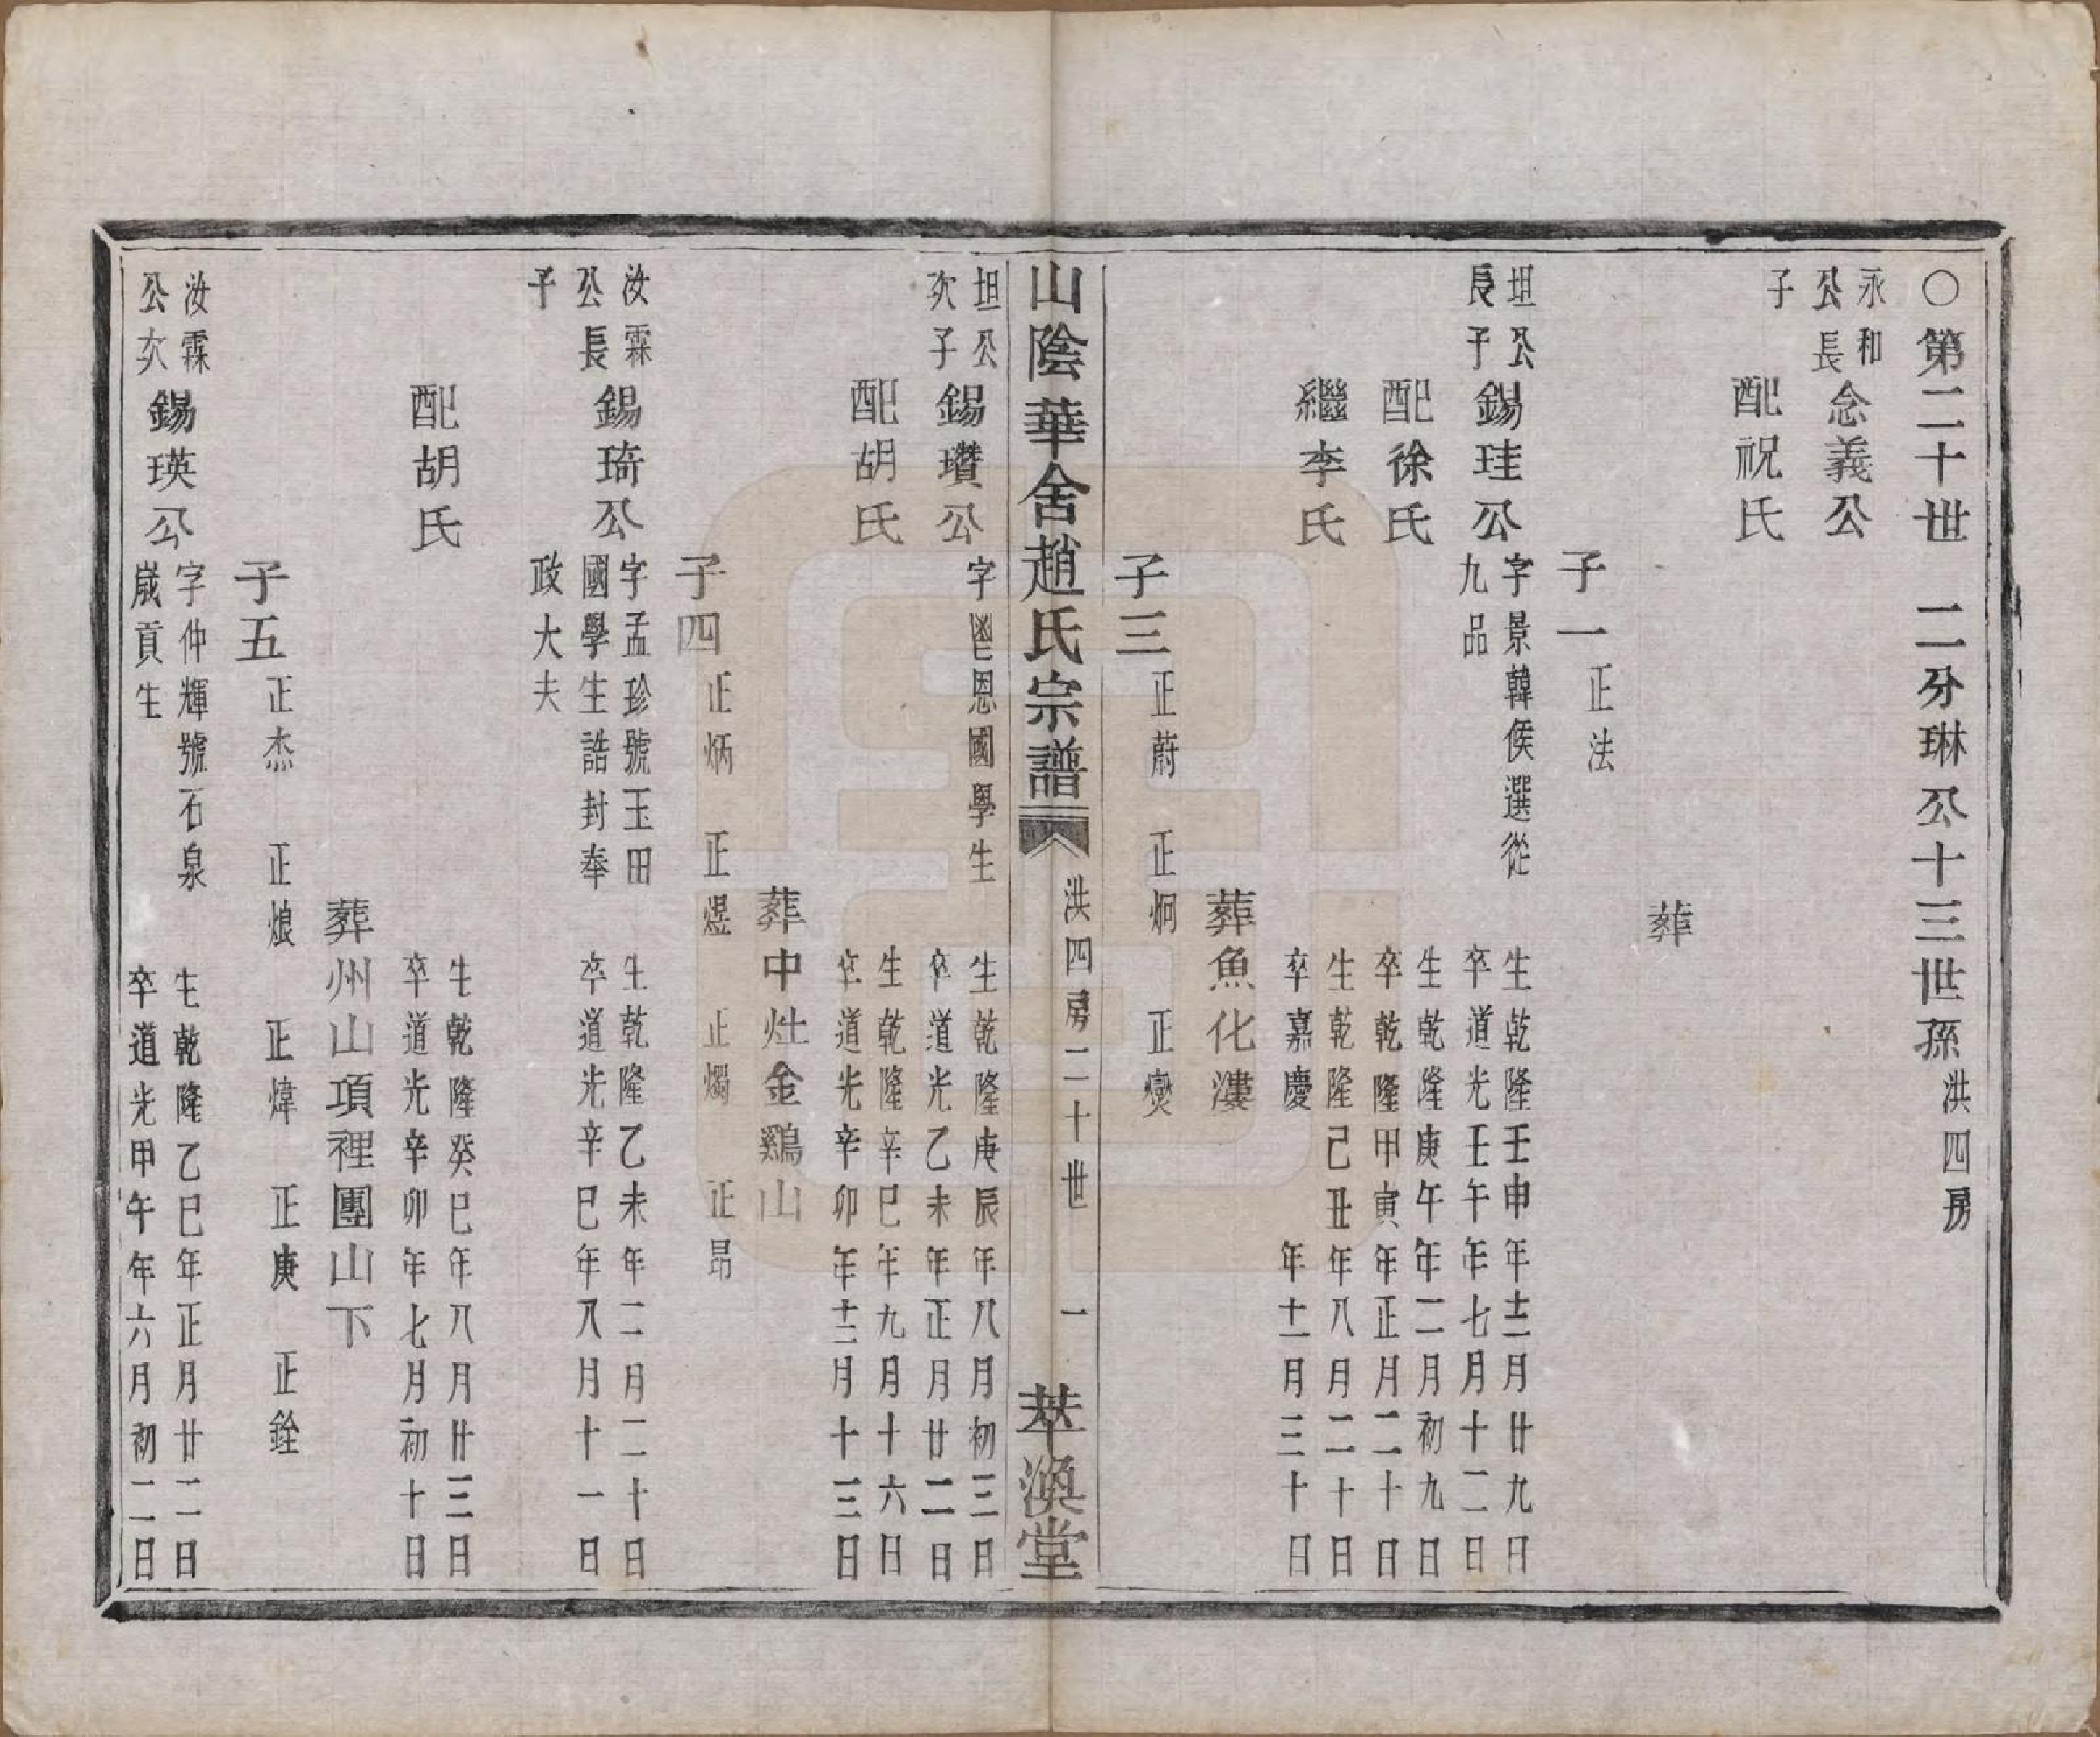 ○第二十世　二分琳公十三世孫洪四房
永和
公長
子
念義公
配祝氏
葬
子一正法
坦公
長子
錫珪公
字景韓候選從
九品
生乾隆壬申年十二月廿九日
卒道光壬午年七月十二日
配徐氏
生乾隆庚午年二月初九日
卒乾隆甲寅年正月二十日
繼李氏
生乾隆己丑年八月二十日
卒嘉慶　年十一月三十日
葬魚化漊
子三正蔚　正炯　正燮
山陰華舍趙氏宗譜　洪四房二十世　一　萃渙堂
坦公
次子
錫瓚公
字鬯恩國學生
生乾隆庚辰年八月初三日
卒道光乙未年正月廿二日
配胡氏
生乾隆辛巳年九月十六日
卒道光辛卯年十二月十三日
葬中灶金鷄山
子四正炳　正煜　正燭　正昂
汝霖
公長
子
錫琦公
字孟珍號玉田
國學生誥封奉
政大夫
生乾隆乙未年二月二十日
卒道光辛巳年八月十一日
配胡氏
生乾隆癸巳年八月廿三日
卒道光辛卯年七月初十日
葬州山項裡團山下
子五正杰　正烺　正煒　正庚　正銓
汝霖
公次
錫瑛公
字仲輝號石泉
歲貢生
生乾隆乙巳年正月廿二日
卒道光甲午年六月初二日